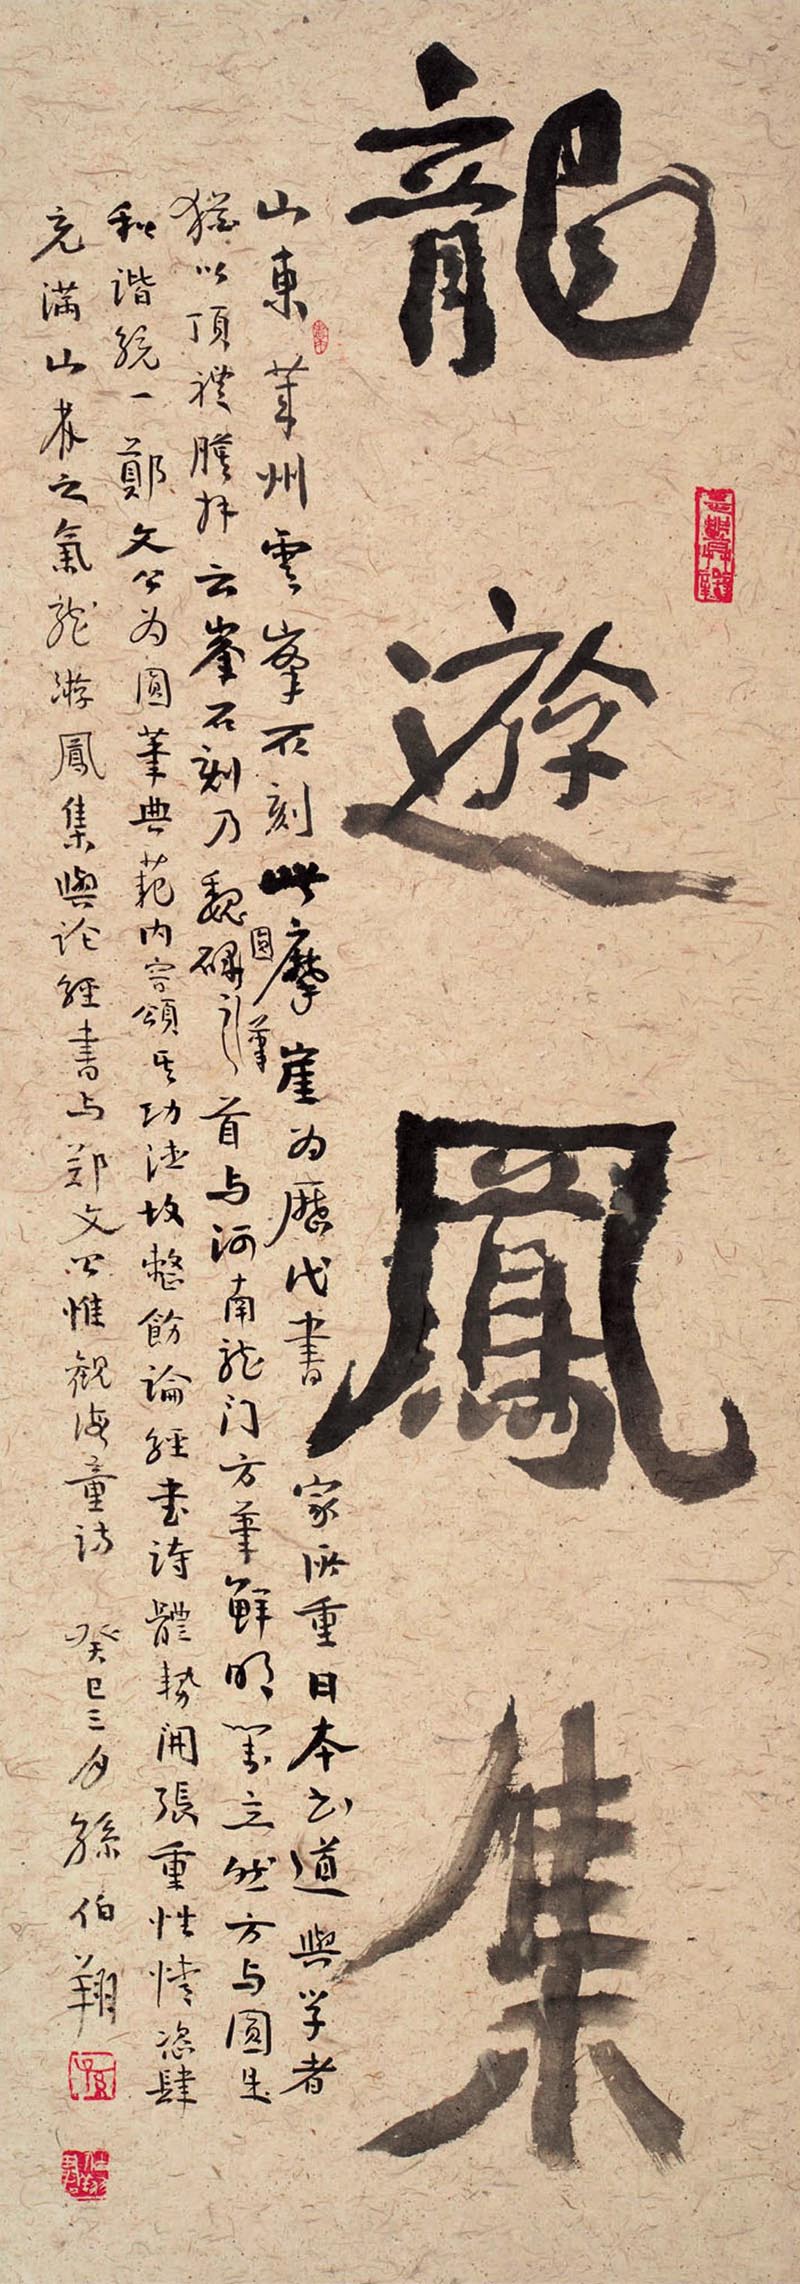 龍遊鳳集
山東莱州雲峯石刻此摩崖为歷代書家所重日本书道與学者
猶以頂禮膜拜云峯石刻乃魏碑圓筆之首与河南龙门方筆鲜明对立然方与圓是
和谐統一鄭文公为圓筆典范内容頌其功德故整飭論經书詩體势開張重性情恣肆
充满山林之氣龙游鳳集與论經書与郑文公惟觀海童诗 癸巳三月孫伯翔